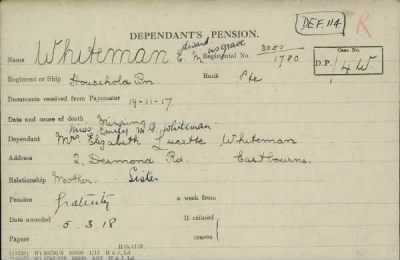 DEPENDANT'S PENSION.
DEF. 114
K
Name Whiteman E. M. Edward Musgrave Regimental No. 3050
1780
Case No.
D.P. 14W
Regiment or Ship Household Bn Rank Pte
Documents received from Paymaster 19-11-17.
Date and cause of death Missing
Miss Emily M. G. Whiteman
Dependant Mrs Elizabeth Lucette Whiteman
Address 2, Desmond Rd. Eastbourne.
Relationship Mother. Sister
Pension Gratuity a week from
Date awarded 5.3.18 If refused
Papers reason